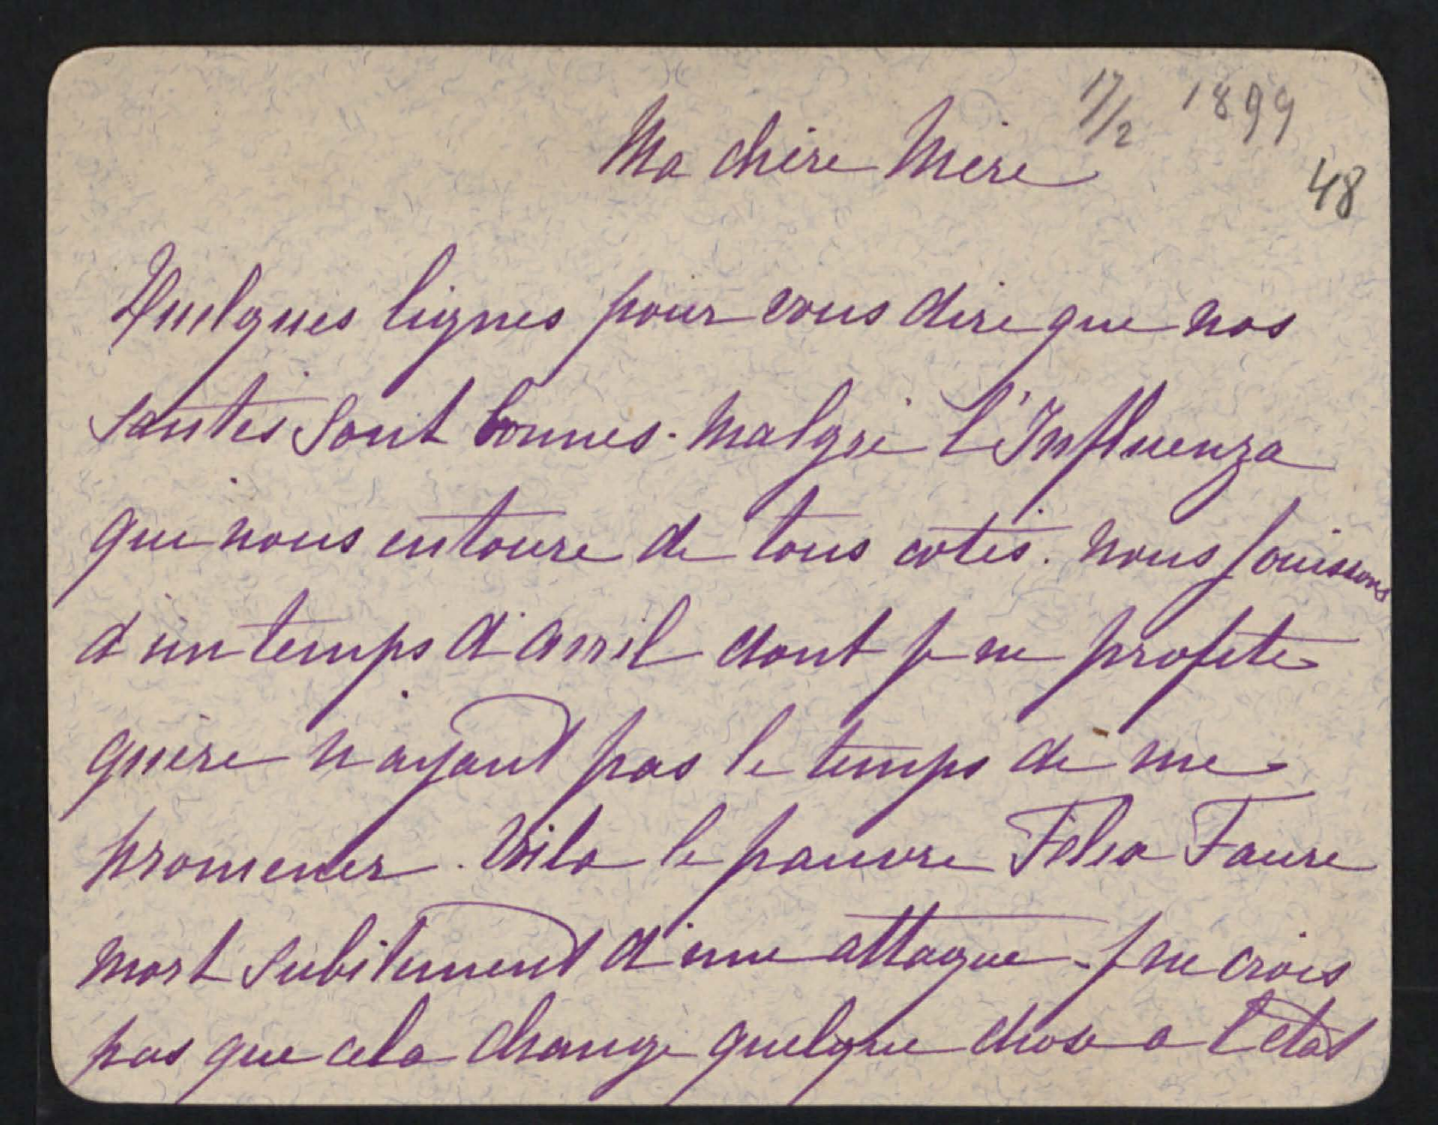 17/2 1899
Ma chère Mère
48
Quelques lignes pour vous dire que nos
santés sont bonnes. malgré l'Influenza
qui nous entoure de tous cotés. nous jouissons
d'un temps d'avril dont je ne profite
guère n'ayant pas le temps de me
promener. Voila le pauvre Felix Faure
mort subitement d'une attaque. je ne crois
pas que cela change quelque chose a l'etat